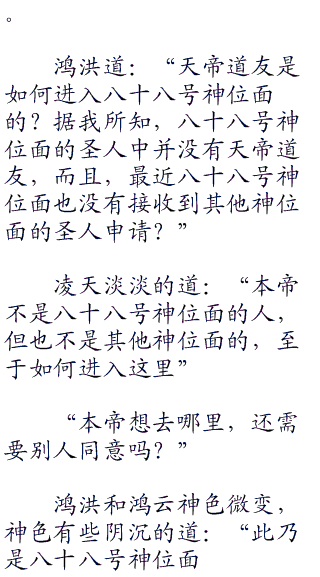 。
鸿洪道：“天帝道友是
如何进入八十八号神位面
的？据我所知，八十八号神
位面的圣人中并没有天帝道
友，而且，最近八十八号神
位面也没有接收到其他神位
面的圣人申请？”
凌天淡淡的道：“本帝
不是八十八号神位面的人，
但也不是其他神位面的，至
于如何进入这里”
“本帝想去哪里，还需
要别人同意吗？”
鸿洪和鸿云神色微变，
神色有些阴沉的道：“此乃
是八十八号神位面